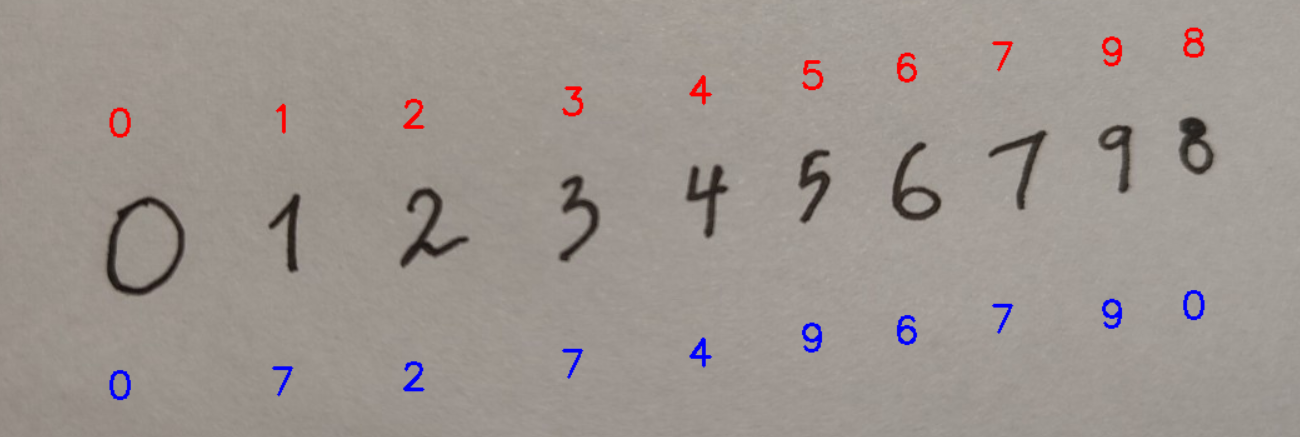 0 1 2 3 4 5 6 7 9 8
0 1 2 3 4 5 6 7 9 8
0 7 2 7 4 9 6 7 9 0